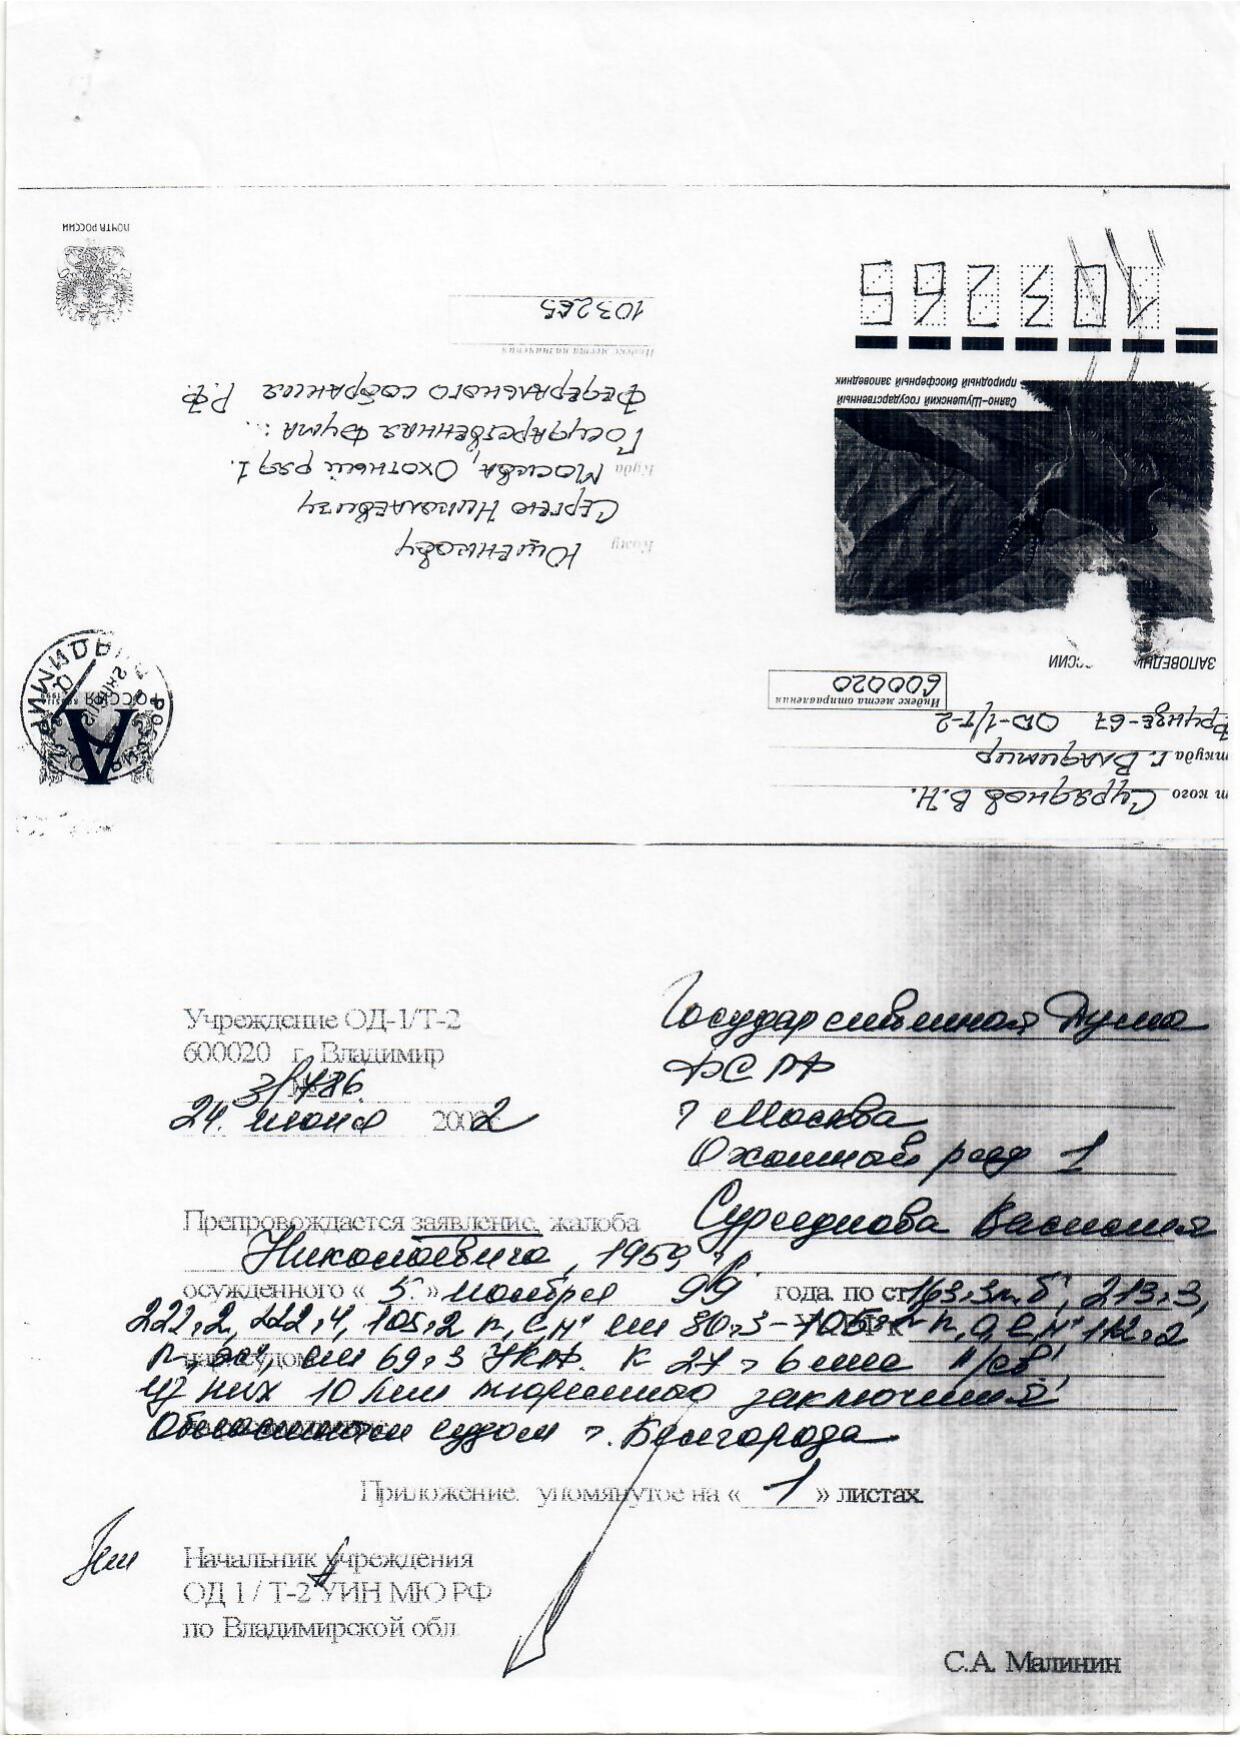 ПОЧТА РОССИИ
103265
Индекс места назначения
Федерального собрания Р.Ф.
Государственная Дума
Куда Москва, Охотный ряд 1.
Сергею Николаевичу
Кому Юшенкову
103265
Саяно-Шушенский государственный
природный биосферный заповедник
600020
Индекс места отправления
Фрунзе-67 ОД-1/Т-2
ткуда г. Владимир
т кого Суряднов В.Н.
А
Учреждение ОД-1/Т-2
600020 г. Владимир
24. июня 2002
Государственная Дума
ФС РФ
г Москва
Охотный ряд 1
Препровождается заявление, жалоба Суряднова Василия
Николаевича, 1959 г
осужденного « 5. » ноября 99 года. по ст 163.3п.б, 213.3,
222.2, 222.4, 105.2 п,
69.3 УКРФ. К 24 г 6 м-ца л/св
из них 10 лет тюремного заключения
Областным судом г. Белгорода
Приложение. упомянутое на « 1 » листах.
Начальник учреждения
ОД 1 / Т-2 УИН МЮ РФ
по Владимирской обл
С.А. Малинин